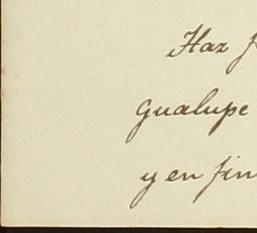 Haz f
Gualupe
y en fin